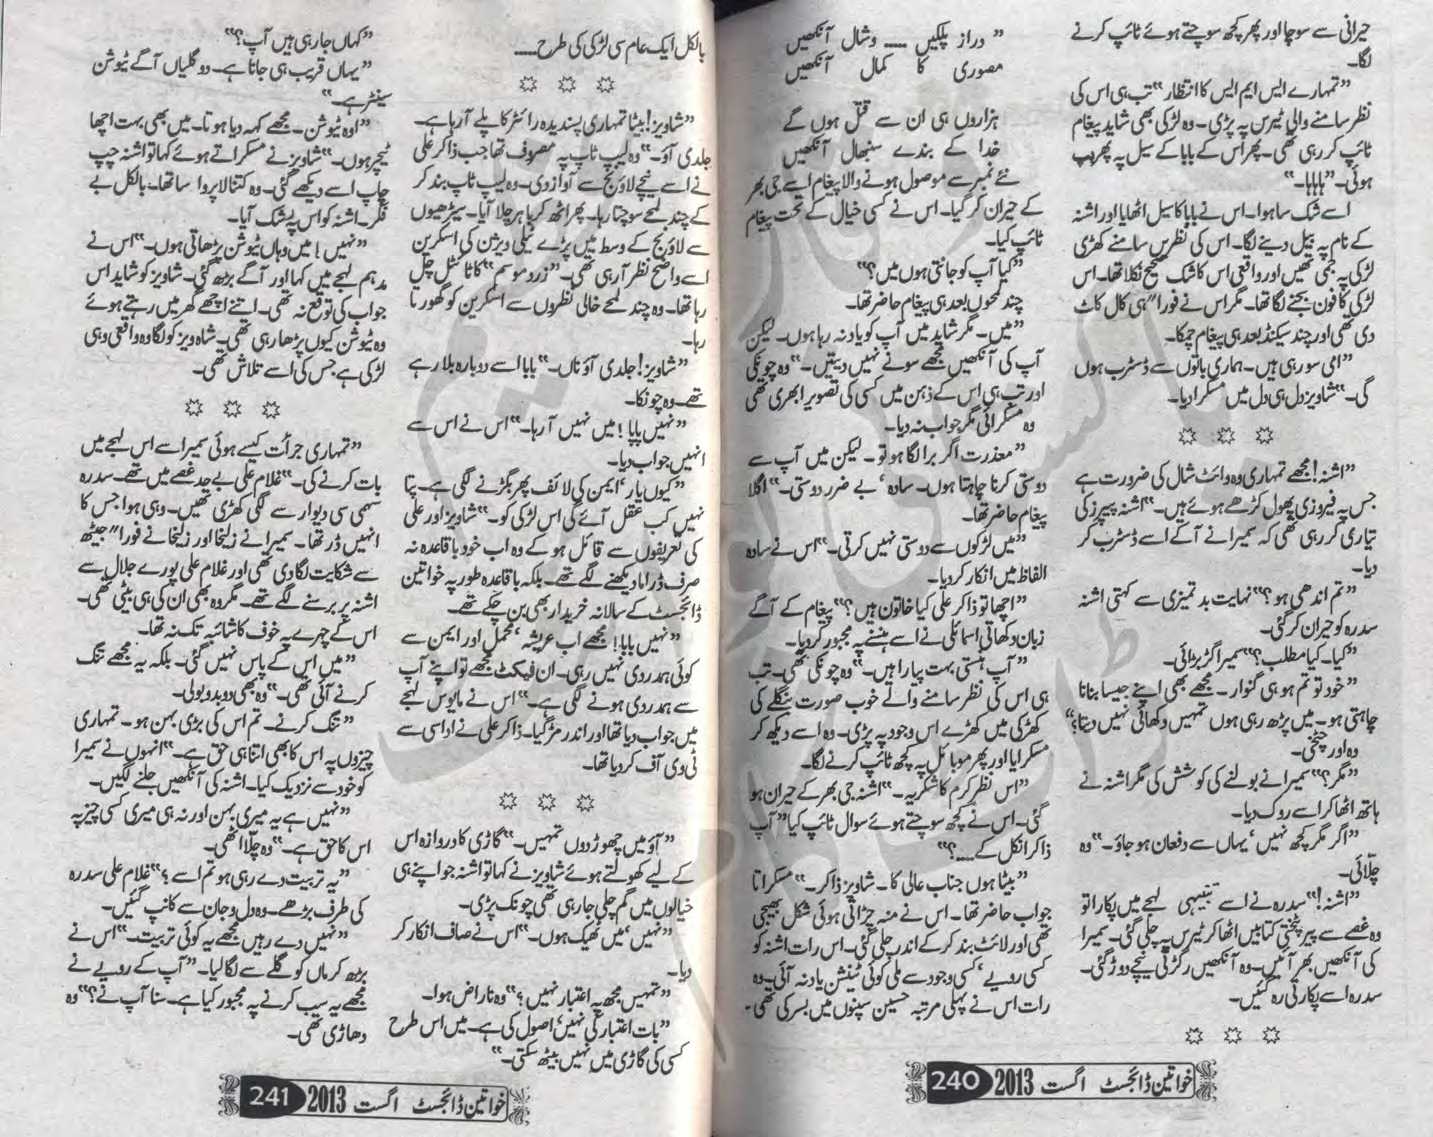 حیرانی سے سوچا اور پھر کچھ سوچتے ہوئے ٹائپ کرنے
لگا۔
”تمہارے ایس ایم ایس کا انتظار“ تب ہی اس کی
نظر سامنے والی ٹیرس پہ پڑی۔ وہ لڑکی بھی شاید پیغام
ٹائپ کر رہی تھی۔ پھر اس کے بابا کے سیل پہ پھر بپ
ہوئی۔ ”ہاہاہا۔“
اسے شک سا ہوا۔ اس نے بابا کا سیل اٹھایا اور اشنہ
کے نام پہ بیل دینے لگا۔ اس کی نظریں سامنے کھڑی
لڑکی پہ جمی تھیں اور واقعی اس کا شک صحیح نکلا تھا۔ اس
لڑکی کا فون بجنے لگا تھا۔ مگر اس نے فوراً ہی کال کاٹ
دی تھی اور چند سیکنڈ بعد ہی پیغام چمکا۔
”امی سو رہی ہیں۔ ہماری باتوں سے ڈسٹرب ہوں
گی۔“ شاویز دل ہی دل میں مسکرا دیا۔
”اشنہ! مجھے تمہاری وہ وائٹ شال کی ضرورت ہے
جس پہ فیروزی پھول کڑھے ہوئے ہیں۔“ اشنہ پیپرز کی
تیاری کر رہی تھی کہ سمیرا نے آکے اسے ڈسٹرب کر
دیا۔
”تم اندھی ہو؟“ نہایت بدتمیزی سے کہتی اشنہ
سدرہ کو حیران کر گئی۔
”کیا۔ کیا مطلب؟“ سمیرا گڑبڑائی۔
”خود تو تم ہو ہی گنوار۔ مجھے بھی اپنے جیسا بنانا
چاہتی ہو۔ میں پڑھ رہی ہوں تمہیں دکھائی نہیں دیتا؟“
وہ اور چیخی۔
”مگر؟“ سمیرا نے بولنے کی کوشش کی مگر اشنہ نے
ہاتھ اٹھا کر اسے روک دیا۔
”اگر مگر کچھ نہیں‘ یہاں سے دفعان ہو جاؤ۔“ وہ
چلّائی۔
”اشنہ!“ سدرہ نے اسے تنبیہی لہجے میں پکارا تو
وہ غصے سے پیر پٹختی کتابیں اٹھا کر ٹیرس پہ چلی گئی۔ سمیرا
کی آنکھیں بھر آئیں۔ وہ آنکھیں رگڑتی نیچے دوڑ گئی۔
سدرہ اسے پکارتی رہ گئیں۔
”دراز پلکیں ۔۔۔۔ وشال آنکھیں
مصوری کا کمال آنکھیں
ہزاروں ہی ان سے قتل ہوں گے
خدا کے بندے سنبھال آنکھیں
نئے نمبر سے موصول ہونے والا پیغام اسے جی بھر
کے حیران کر گیا۔ اس نے کسی خیال کے تحت پیغام
ٹائپ کیا۔
”کیا آپ کو جانتی ہوں میں؟“
چند لمحوں بعد ہی پیغام حاضر تھا۔
”میں۔ مگر شاید میں آپ کو یاد نہ رہا ہوں۔ لیکن
آپ کی آنکھیں مجھے سونے نہیں دیتیں۔“ وہ چونکی
اور تب ہی اس کے ذہن میں کسی کی تصویر ابھری تھی
وہ مسکرائی مگر جواب نہ دیا۔
”معذرت اگر برا لگا ہو تو۔ لیکن میں آپ سے
دوستی کرنا چاہتا ہوں۔ سادہ‘ بے ضرر دوستی۔“ اگلا
پیغام حاضر تھا۔
”میں لڑکوں سے دوستی نہیں کرتی۔“ اس نے سادہ
الفاظ میں انکار کر دیا۔
”اچھا تو ذاکر علی کیا خاتون ہیں؟“ پیغام کے آگے
زبان دکھاتی اسمائلی نے اسے ہنسنے پہ مجبور کر دیا۔
”آپ ہنستی بہت پیارا ہیں۔“ وہ چونکی تھی۔ تب
ہی اس کی نظر سامنے والے خوب صورت بنگلے کی
کھڑکی میں کھڑے اس وجود پہ پڑی۔ وہ اسے دیکھ کر
مسکرایا اور پھر موبائل پہ کچھ ٹائپ کرنے لگا۔
”اس نظر کرم کا شکریہ۔“ اشنہ جی بھر کے حیران ہو
گئی۔ اس نے کچھ سوچتے ہوئے سوال ٹائپ کیا ”آپ
ذاکر انکل کے ۔۔۔۔؟“
”بیٹا ہوں جناب عالی کا۔ شاویز ذاکر۔“ مسکراتا
جواب حاضر تھا۔ اس نے منہ چڑاتی ہوئی شکل بھیجی
تھی اور لائٹ بند کر کے اندر چلی گئی۔ اس رات اشنہ کو
کسی رویے‘ کسی وجود سے ملی کوئی ٹینشن یاد نہ آئی۔ وہ
رات اس نے پہلی مرتبہ حسین سپنوں میں بسر کی تھی۔
خواتین ڈائجسٹ اگست 2013 240
بالکل ایک عام سی لڑکی کی طرح ۔۔۔۔
”شاویز! بیٹا تمہاری پسندیدہ رائٹر کا پلے آ رہا ہے۔
جلدی آؤ۔“ وہ لیپ ٹاپ پہ مصروف تھا جب ذاکر علی
نے اسے نیچے لاؤنج سے آواز دی۔ وہ لیپ ٹاپ بند کر
کے چند لمحے سوچتا رہا۔ پھر اٹھ کر باہر چلا آیا۔ سیڑھیوں
سے لاؤنج کے وسط میں پڑے ٹیلی ویژن کی اسکرین
اسے واضح نظر آ رہی تھی۔ ”زرد موسم“ کا ٹائٹل چل
رہا تھا۔ وہ چند لمحے خالی نظروں سے اسکرین کو گھورتا
رہا۔
”شاویز! جلدی آؤ ناں۔“ بابا اسے دوبارہ بلا رہے
تھے۔ وہ چونکا۔
”نہیں پاپا! میں نہیں آ رہا۔“ اس نے اس سے
انہیں جواب دیا۔
”کیوں یار‘ ایمن کی لائف پھر بگڑنے لگی ہے۔ پتا
نہیں کب عقل آئے گی اس لڑکی کو۔“ شاویز اور علی
کی تعریفوں سے قائل ہو کے وہ اب خود باقاعدہ نہ
صرف ڈراما دیکھنے لگے تھے۔ بلکہ باقاعدہ طور پہ خواتین
ڈائجسٹ کے سالانہ خریدار بھی بن چکے تھے۔
”نہیں بابا! مجھے اب عریشہ‘ مخمل اور ایمن سے
کوئی ہمدردی نہیں رہی۔ ان فیکٹ مجھے تو اپنے آپ
سے ہمدردی ہونے لگی ہے۔“ اس نے مایوس لہجے
میں جواب دیا تھا اور اندر مڑ گیا۔ ذاکر علی نے اداسی سے
ٹی وی آف کر دیا تھا۔
”آؤ میں چھوڑ دوں تمہیں۔“ گاڑی کا دروازہ اس
کے لیے کھولتے ہوئے شاویز نے کہا تو اشنہ جو اپنے ہی
خیالوں میں گم چلی جا رہی تھی چونک پڑی۔
”نہیں‘ میں ٹھیک ہوں۔“ اس نے صاف انکار کر
دیا۔
”تمہیں مجھ پہ اعتبار نہیں؟“ وہ ناراض ہوا۔
”بات اعتبار کی نہیں‘ اصول کی ہے۔ میں اس طرح
کسی کی گاڑی میں نہیں بیٹھ سکتی۔“
”کہاں جا رہی ہیں آپ؟“
”یہاں قریب ہی جانا ہے۔ دو گلیاں آگے ٹیوشن
سینٹر ہے۔“
”اوہ ٹیوشن۔ مجھے کہہ دیا ہوتا۔ میں بھی بہت اچھا
ٹیچر ہوں۔“ شاویز نے مسکراتے ہوئے کہا تو اشنہ چپ
چاپ اسے دیکھے گئی۔ وہ کتنا لاپروا سا تھا۔ بالکل بے
فکر۔ اشنہ کو اس پہ رشک آیا۔
”نہیں! میں وہاں ٹیوشن پڑھاتی ہوں۔“ اس نے
مدہم لہجے میں کہا اور آگے بڑھ گئی۔ شاویز کو شاید اس
جواب کی توقع نہ تھی۔ اتنے اچھے گھر میں رہتے ہوئے
وہ ٹیوشن کیوں پڑھا رہی تھی۔ شاہ ویز کو لگا وہ واقعی وہی
لڑکی ہے جس کی اسے تلاش تھی۔
”تمہاری جرأت کیسے ہوئی سمیرا سے اس لہجے میں
بات کرنے کی۔“ غلام علی بے حد غصے میں تھے۔ سدرہ
سہمی سی دیوار سے لگی کھڑی تھیں۔ وہی ہوا‘ جس کا
انہیں ڈر تھا۔ سمیرا نے زلیخا اور زلیخا نے فوراً جیٹھ
سے شکایت لگا دی تھی اور غلام علی پورے جلال سے
اشنہ پر برسنے لگے تھے۔ مگر وہ بھی ان کی ہی بیٹی تھی۔
اس کے چہرے پہ خوف کا شائبہ تک نہ تھا۔
”میں اس کے پاس نہیں گئی۔ بلکہ یہ مجھے تنگ
کرنے آئی تھی۔“ وہ بھی دوبدو بولی۔
”تنگ کرنے۔ تم اس کی بڑی بہن ہو۔ تمہاری
چیزوں پہ اس کا بھی اتنا ہی حق ہے۔“ انہوں نے سمیرا
کو خود سے نزدیک کیا۔ اشنہ کی آنکھیں جلنے لگیں۔
”نہیں ہے یہ میری بہن اور نہ ہی میری کسی چیز پہ
اس کا حق ہے۔“ وہ چلّا اٹھی۔
”یہ تربیت دے رہی ہو تم اسے؟“ غلام علی سدرہ
کی طرف بڑھے۔ وہ دل و جان سے کانپ گئیں۔
”نہیں دے رہیں مجھے یہ کوئی تربیت۔“ اس نے
بڑھ کر ماں کو گلے سے لگا لیا۔ ”آپ کے رویے نے
مجھے یہ سب کرنے پہ مجبور کیا ہے۔ سنا آپ نے؟“ وہ
دھاڑی تھی۔
خواتین ڈائجسٹ اگست 2013 241